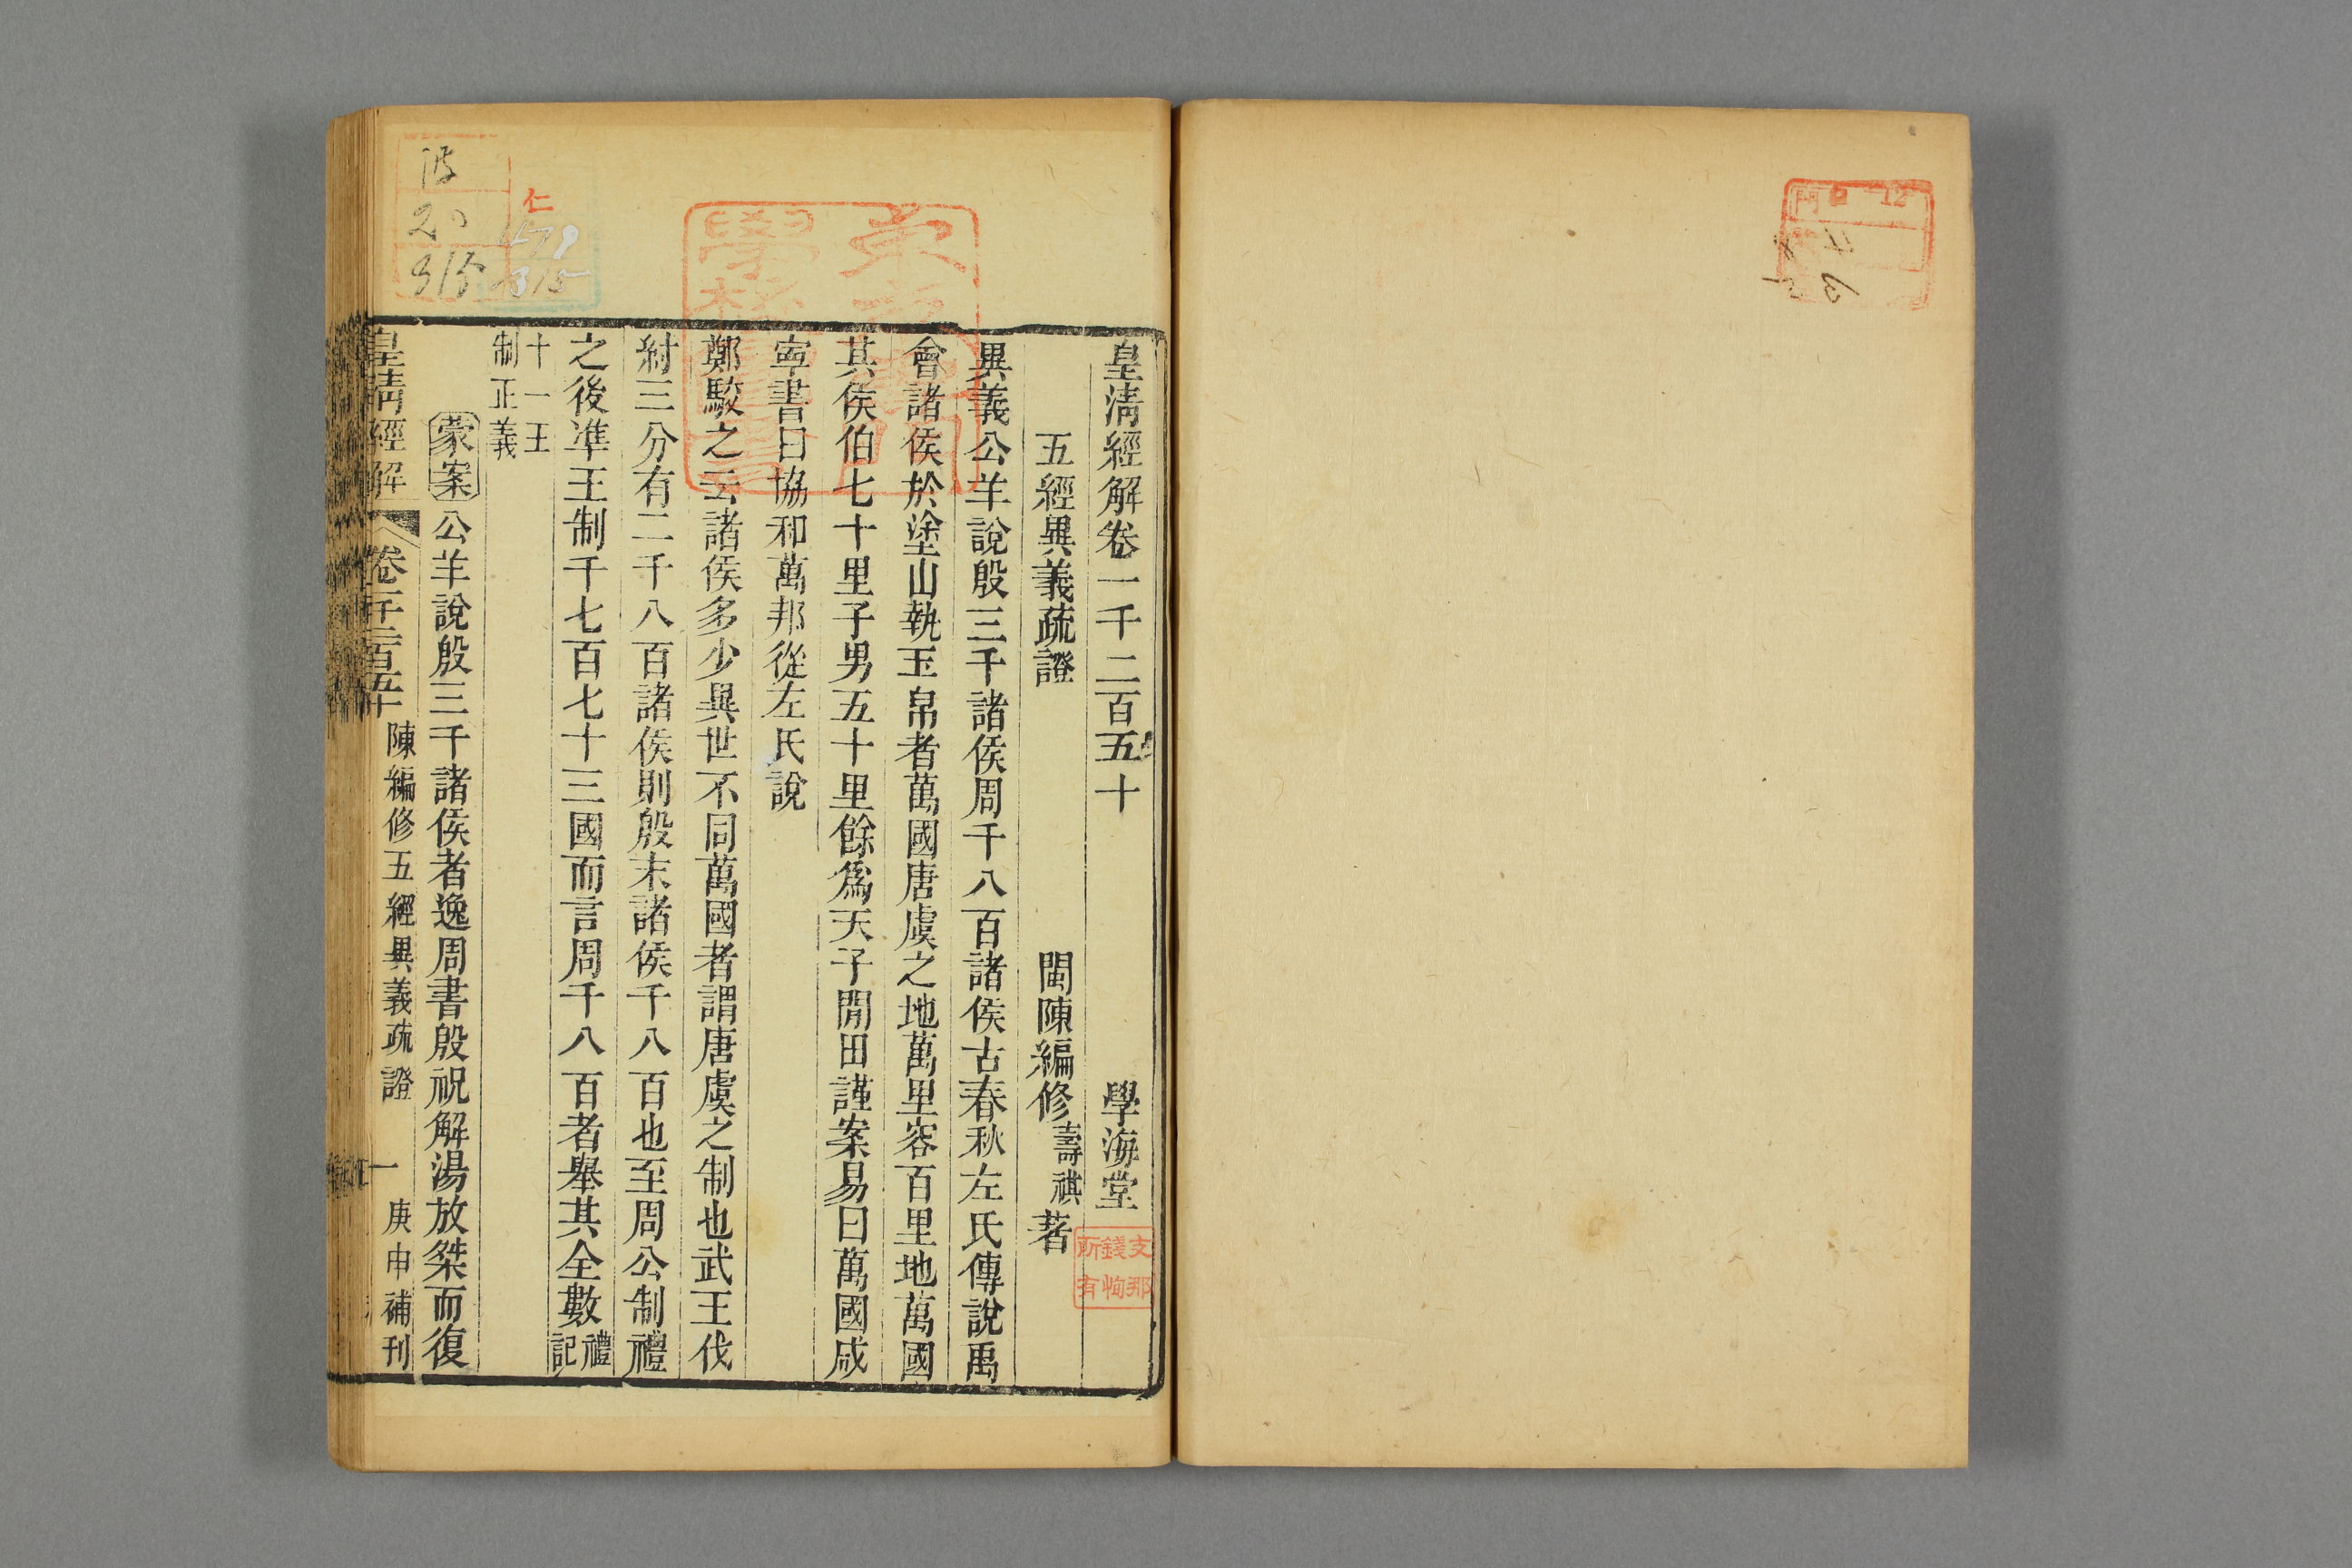 皇清經解卷一千二百五十
學海堂
五經異義疏證
閩陳編修壽祺著
異義公羊說殷三千諸侯周千八百諸侯古春秋左氏傳說禹
會諸侯於塗山執玉帛者萬國唐虞之地萬里容百里地萬國
其侯伯七十里子男五十里餘爲天子閒田謹案易曰萬國咸
寧書曰協和萬邦從左氏說
鄭駮之云諸侯多少異世不同萬國者謂唐虞之制也武王伐
紂三分有二千八百諸侯則殷末諸侯千八百也至周公制禮
之後準王制千七百七十三國而言周千八百者舉其全數禮記
十一王
制正義
蒙案公羊說殷三千諸侯者逸周書殷祝解湯放桀而復
皇清經解
卷一千二百五十
陳編修五經異義疏證
一
庚申補刊
支那
錢恂
所有
仁
20
315
479
315